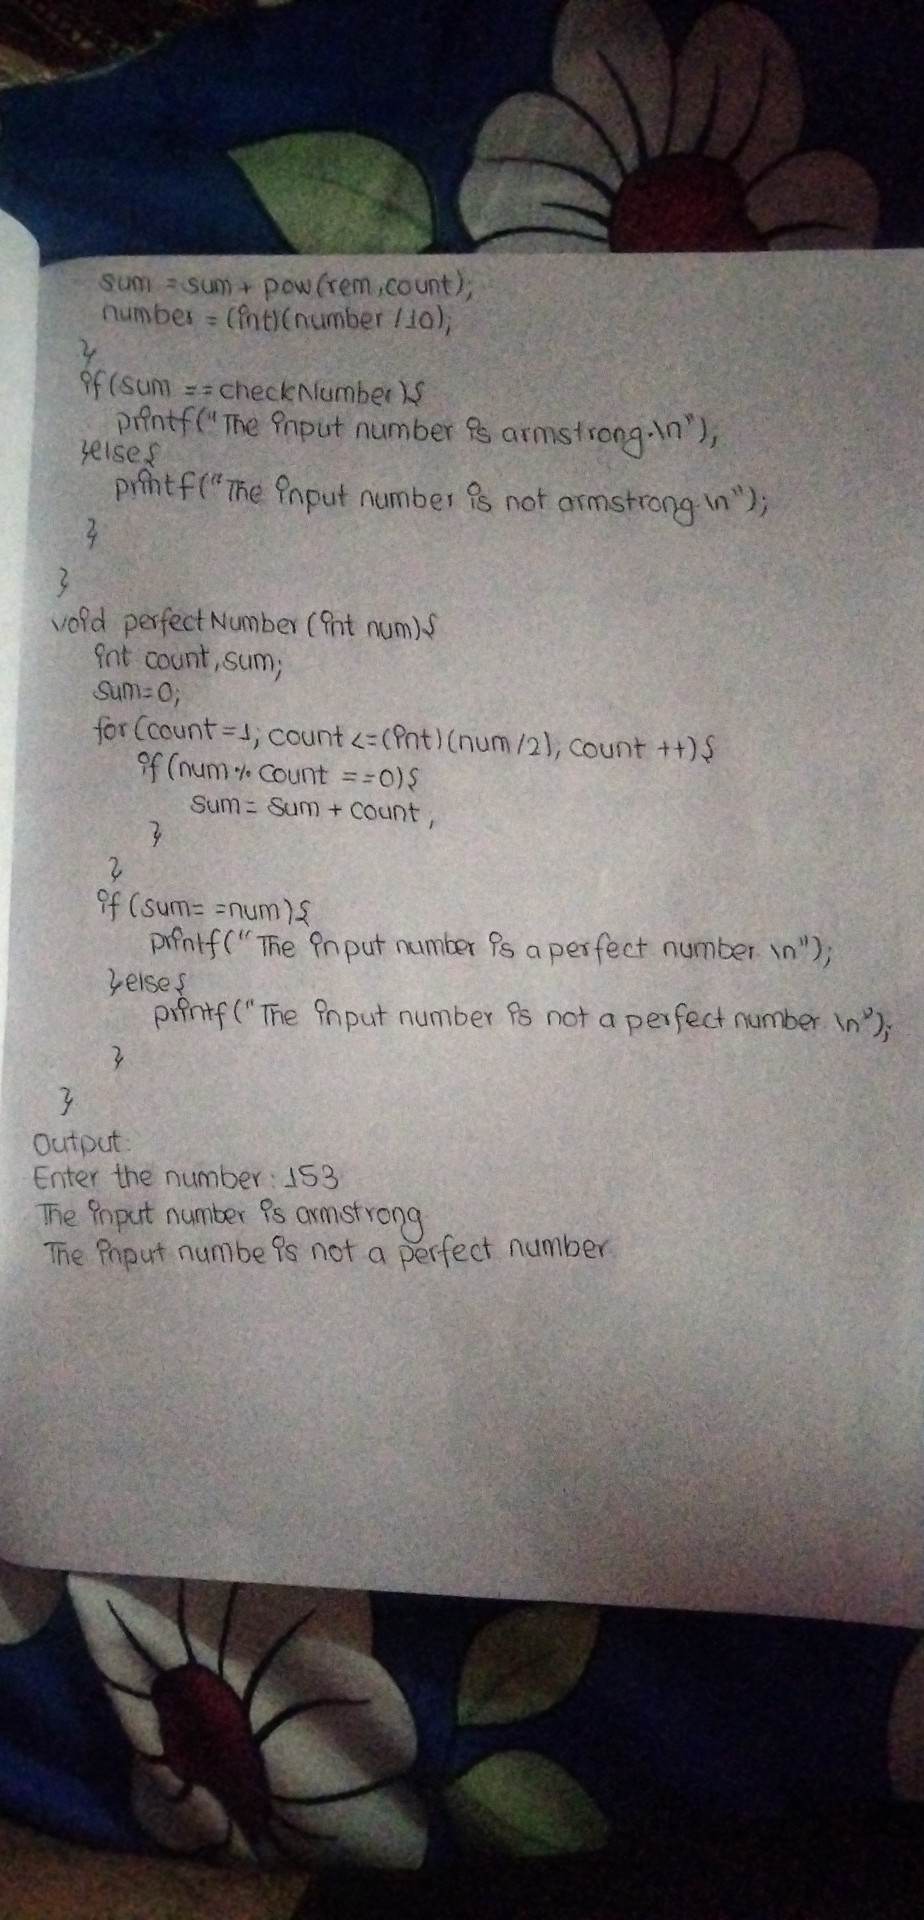 sum = sum + pow(rem,count);
number = (int)(number /10);
}
if(sum ==checkNumber){
printf("The input number is armstrong.\n");
}else{
printf("The input number is not armstrong.\n");
}
}
void perfectNumber (int num){
int count,sum;
sum=0;
for(count=1; count<=(int)(num/2), count ++){
if(num% count ==0){
sum= sum + count,
}
}
if(sum= =num){
printf("The input number is a perfect number \n");
}else{
printf("The input number is not a perfect number \n");
}
}
Output:
Enter the number: 153
The input number is armstrong
The input numbe is not a perfect number